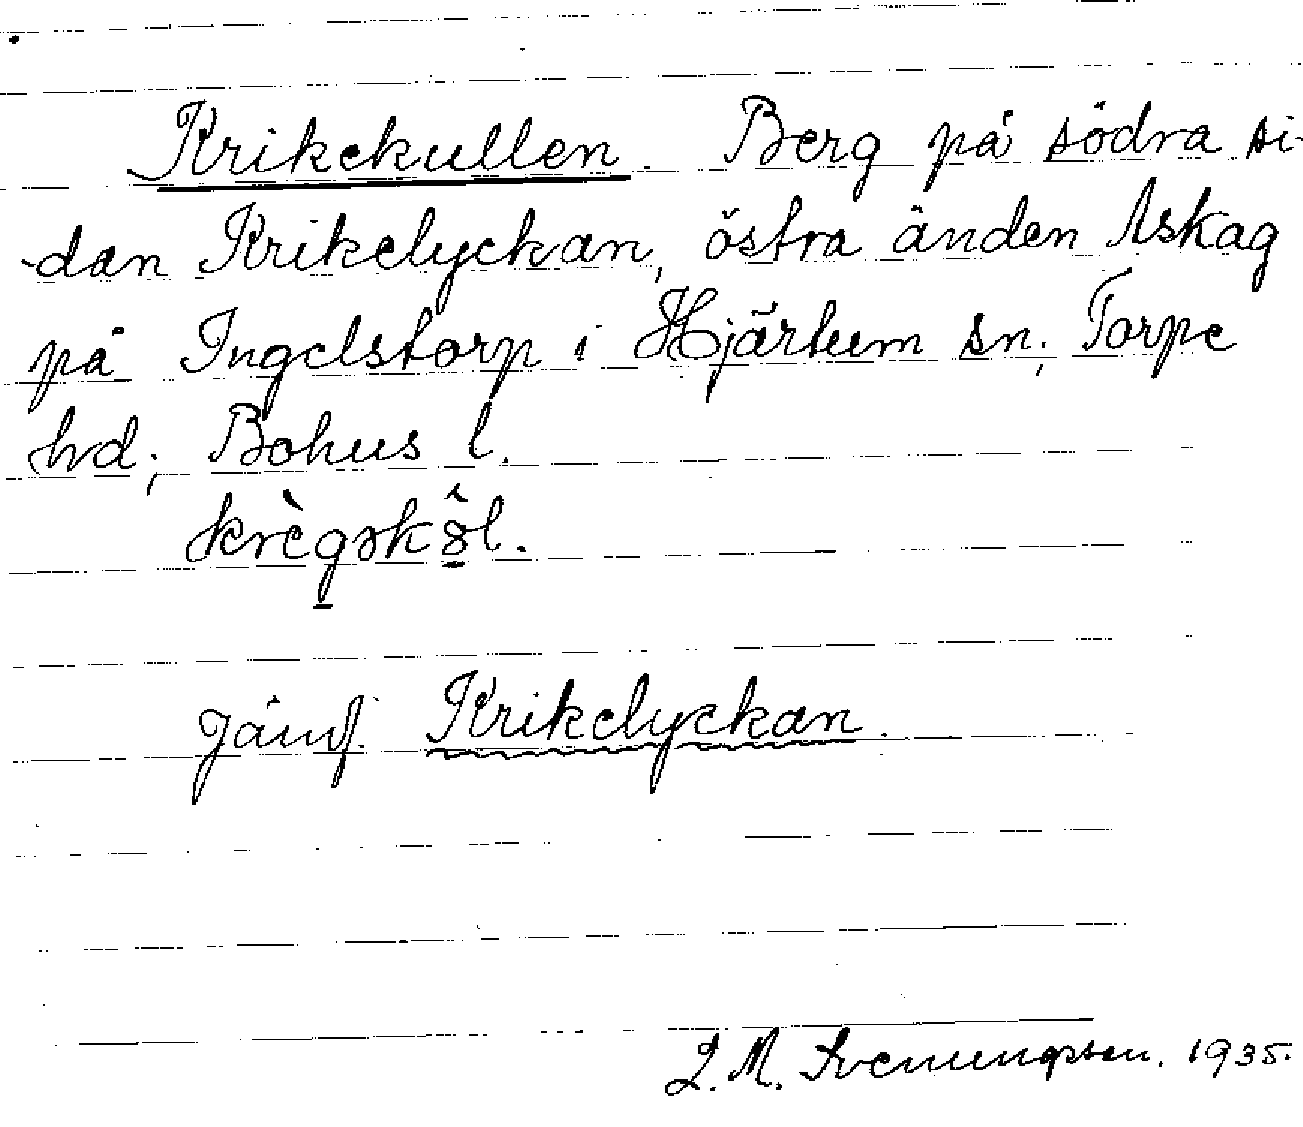 Krikekullen. Berg på södra si-
dan Krikelyckan, östra änden Askag
på Ingelstorp i Hjärtum sn, Torpe
hrd, Bohus l.
krègəkŏ̂l.
Jämf. Krikelyckan.
L. M. Svenungsson. 1935.